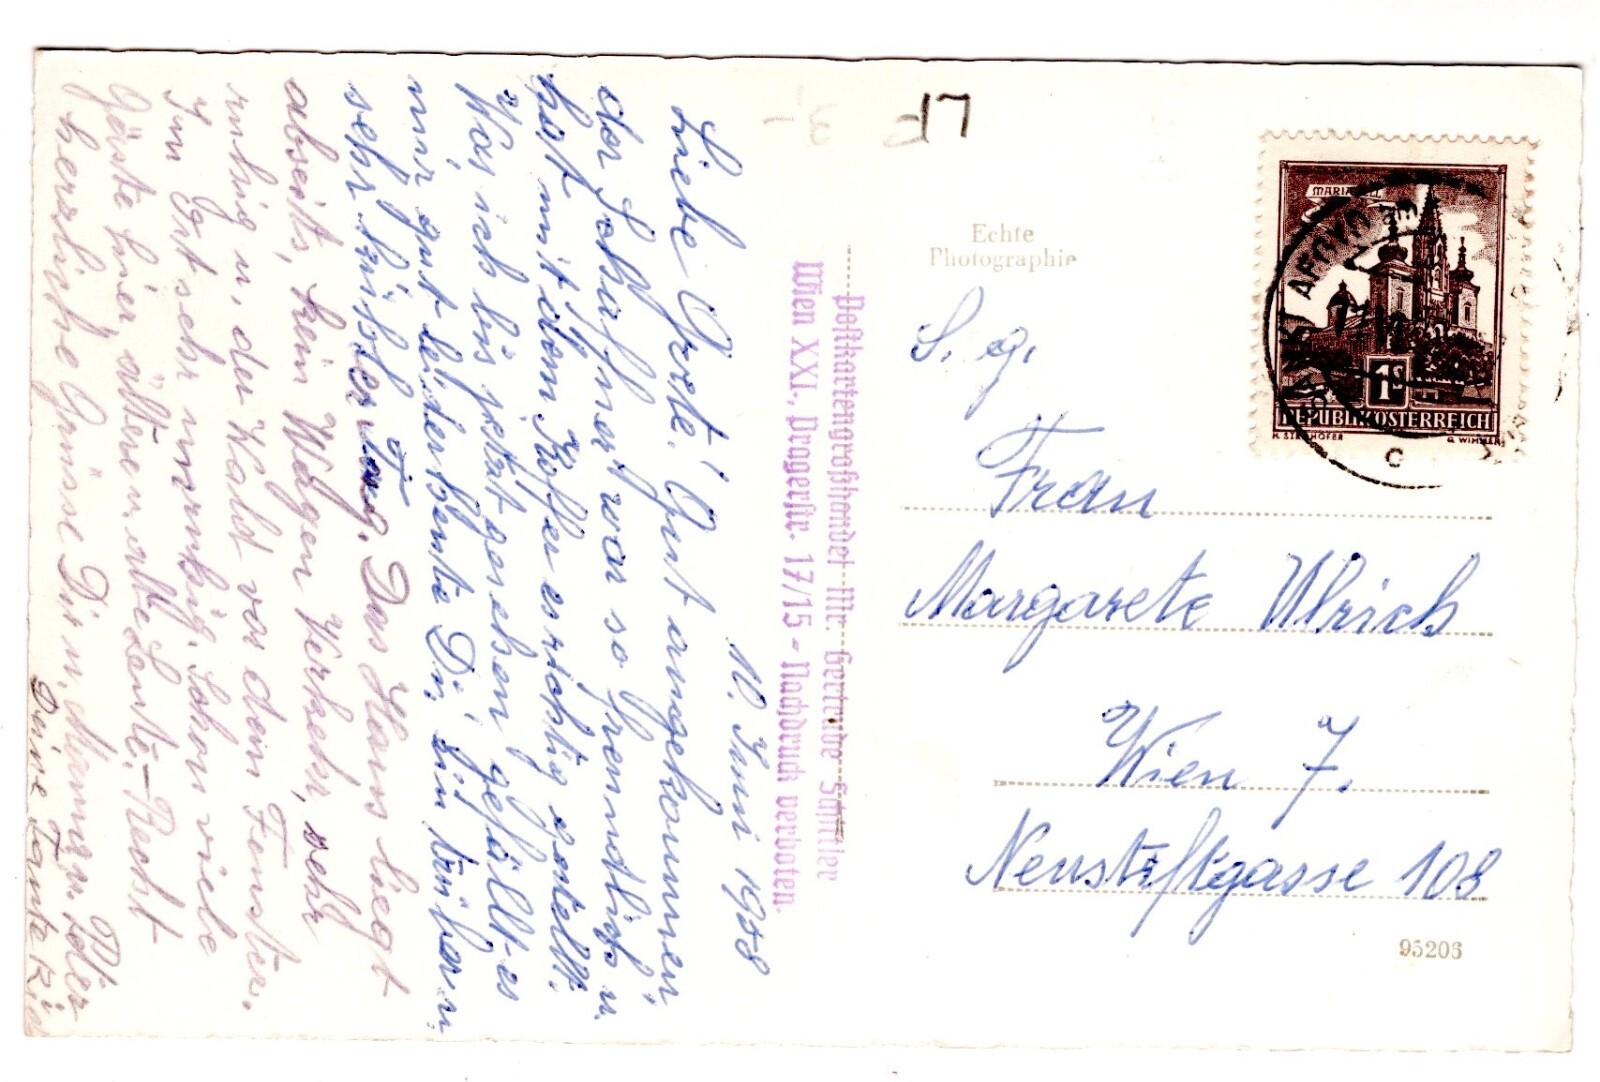 10. Juni 1958
Liebe Grete! Gut angekommen,
der Schaffner war so freundlich u.
hat mit dem Koffer es richtig gestellt.
Was ich bis jetzt gesehen gefällt es
mir gut leider heute Di, ein trüber u.
sehr kühler Tag. Das Haus liegt
abseits, kein Wagen Verkehr, sehr
ruhig u. der Wald vor dem Fenster.
Im Ort sehr unruhig. Schon viele
Gäste hier, ältere u. alte Leute. - Recht
herzliche Grüsse Dir u. Mama u.
Deine Tante
Postkartengroßhandel Mr. Gertrude Schiller
Wien XXI., Pragerstr. 17/15 - Nachdruck verboten.
Echte
Photographie
MARIAZELL
1S
REPUBLIK ÖSTERREICH
G. WIMMER
C
S. g.
Frau
Margarete Ulrich
Wien 7.
Neustiftgasse 108
95206